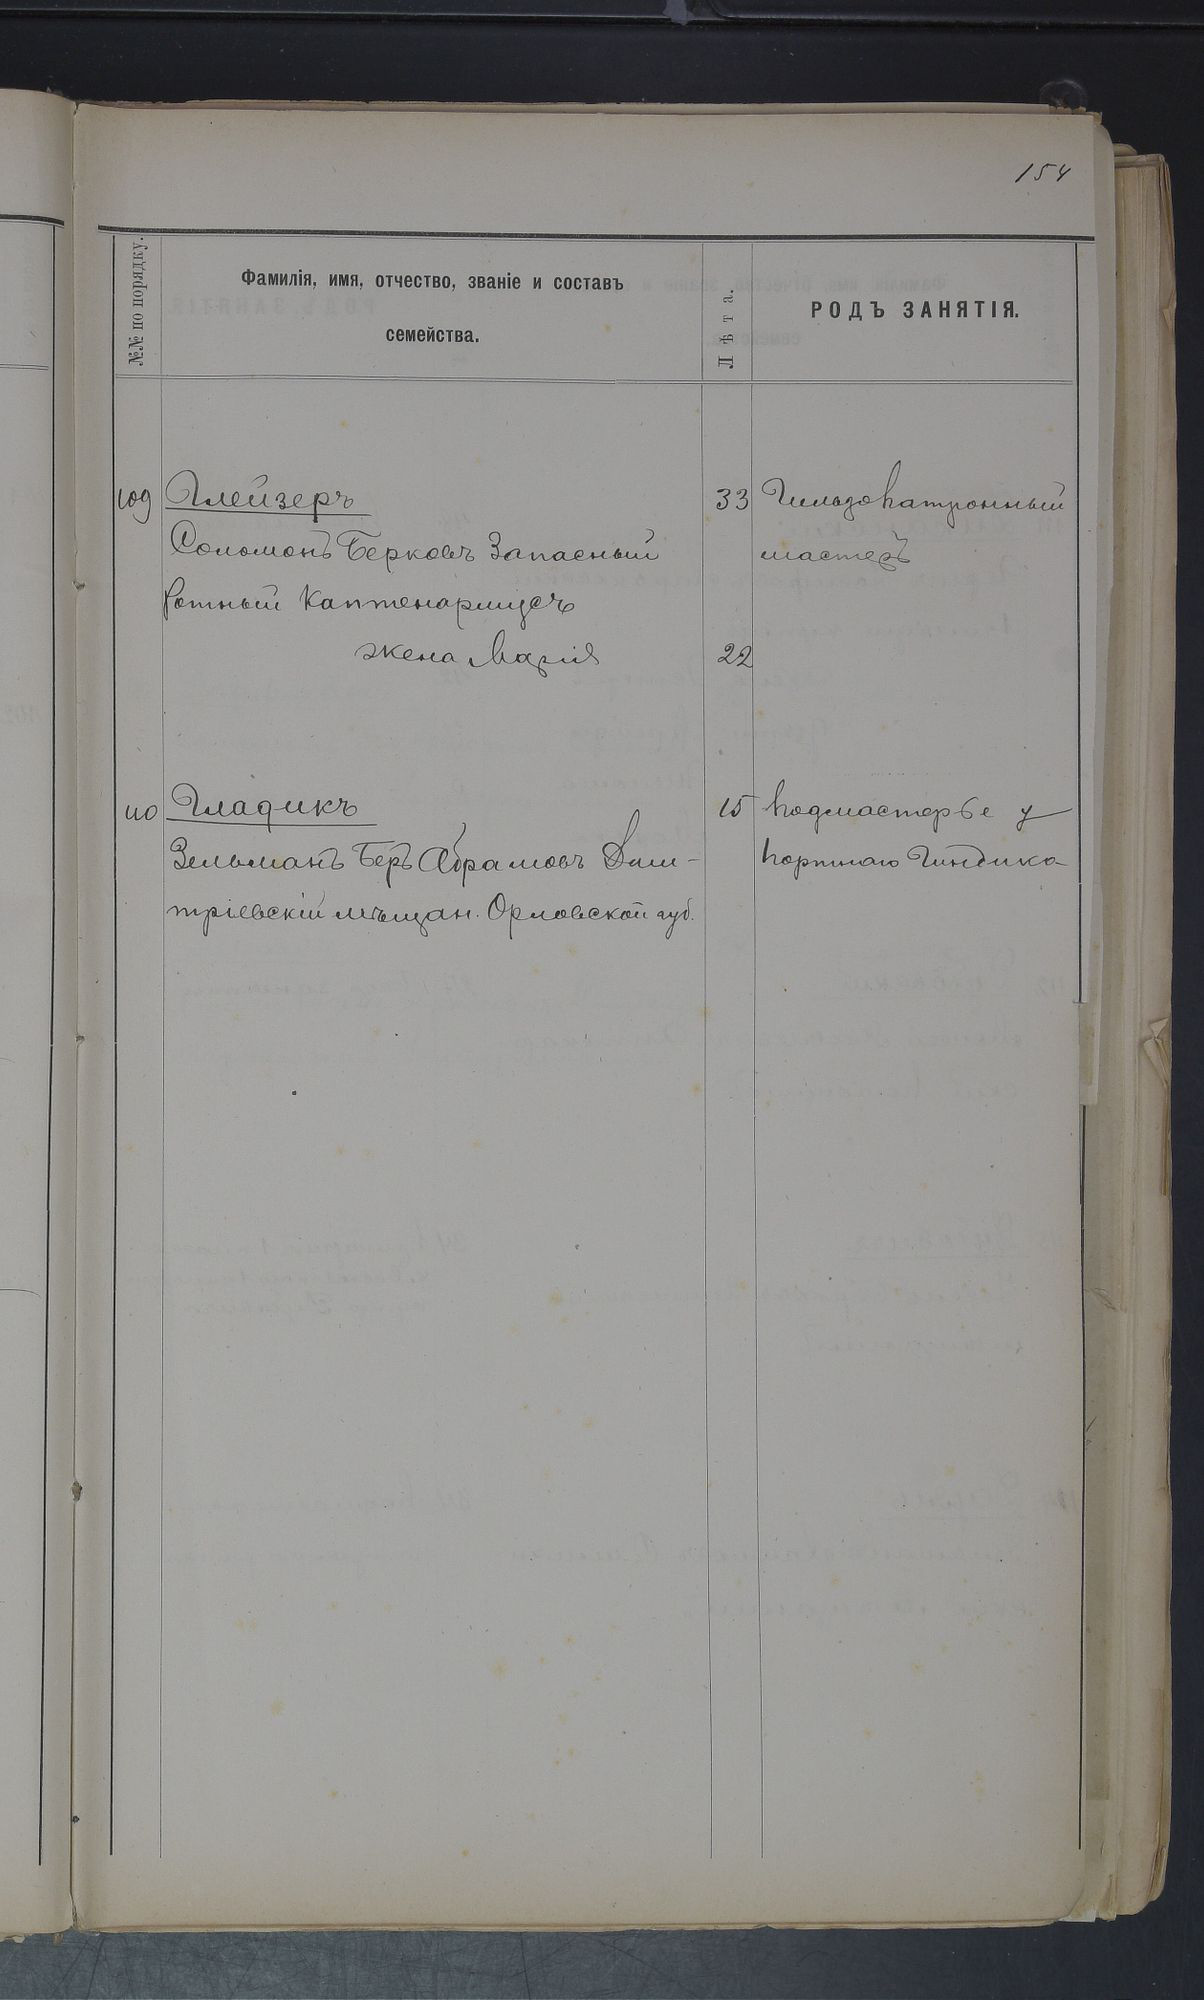 154
№№ по порядку.
Фамилія, имя, отчество, званіе и составъ
семейства.
Лѣта.
РОДЪ ЗАНЯТІЯ.
109 Глейзеръ 33 Гильзопатронный
Соломонъ Берковъ Запасный мастеръ
ротный каптенармусъ
жена Марія 22
110 Гладикъ 15 подмастерье у
Зельманъ Беръ Абрамовъ Дми- портного Гиндика
тріевскій мѣщан. Орловской губ.